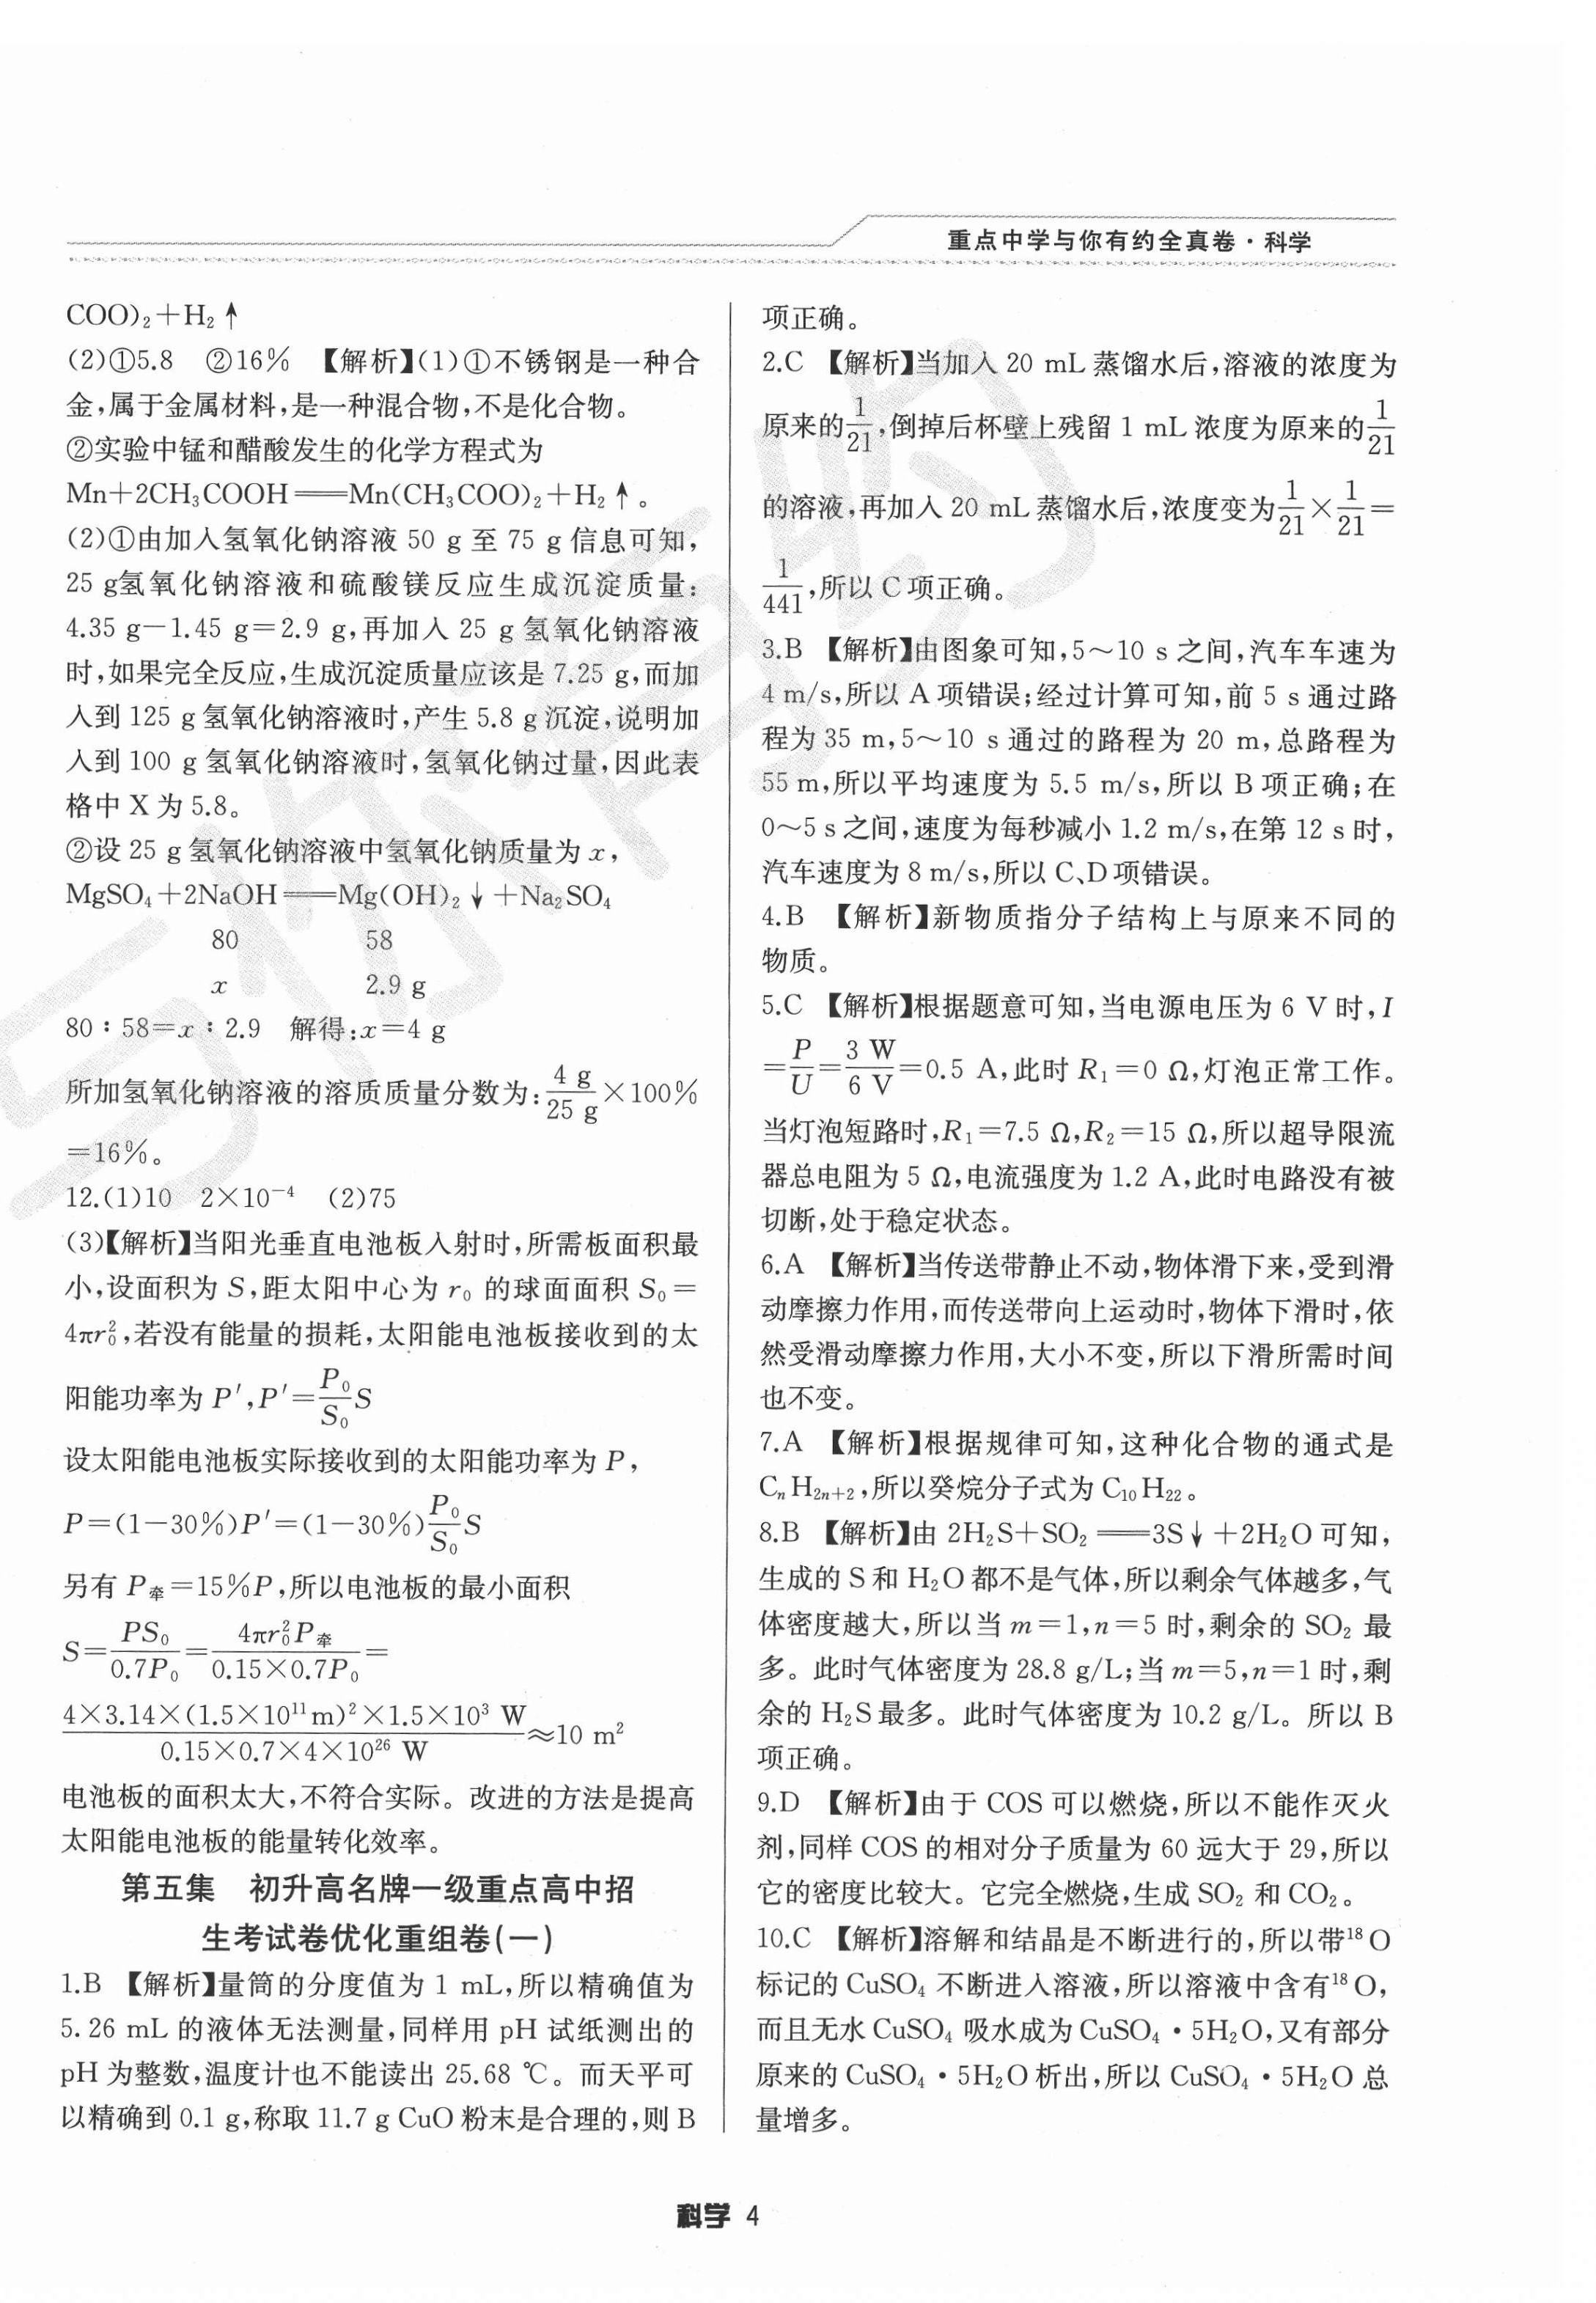 重点中学与你有约全真卷·科学
COO)₂+H₂↑
(2)①5.8 ②16% 【解析】(1)①不锈钢是一种合
金,属于金属材料,是一种混合物,不是化合物。
②实验中锰和醋酸发生的化学方程式为
Mn+2CH₃COOH══Mn(CH₃COO)₂+H₂↑。
(2)①由加入氢氧化钠溶液 50 g 至 75 g 信息可知,
25 g氢氧化钠溶液和硫酸镁反应生成沉淀质量:
4.35 g−1.45 g=2.9 g,再加入 25 g 氢氧化钠溶液
时,如果完全反应,生成沉淀质量应该是 7.25 g,而加
入到 125 g 氢氧化钠溶液时,产生 5.8 g 沉淀,说明加
入到 100 g 氢氧化钠溶液时,氢氧化钠过量,因此表
格中 X 为 5.8。
②设 25 g 氢氧化钠溶液中氢氧化钠质量为 x,
MgSO₄+2NaOH══Mg(OH)₂↓+Na₂SO₄
80 58
x 2.9 g
80∶58=x∶2.9 解得:x=4 g
所加氢氧化钠溶液的溶质质量分数为:4 g/25 g×100%
=16%。
12.(1)10 2×10⁻⁴ (2)75
(3)【解析】当阳光垂直电池板入射时,所需板面积最
小,设面积为 S,距太阳中心为 r₀ 的球面面积 S₀=
4πr₀²,若没有能量的损耗,太阳能电池板接收到的太
阳能功率为 P′,P′=P₀/S₀ S
设太阳能电池板实际接收到的太阳能功率为 P,
P=(1−30%)P′=(1−30%)P₀/S₀ S
另有 P牵=15%P,所以电池板的最小面积
S=PS₀/0.7P₀=4πr₀²P牵/0.15×0.7P₀=
4×3.14×(1.5×10¹¹m)²×1.5×10³ W/0.15×0.7×4×10²⁶ W≈10 m²
电池板的面积太大,不符合实际。改进的方法是提高
太阳能电池板的能量转化效率。
第五集 初升高名牌一级重点高中招
生考试卷优化重组卷(一)
1.B 【解析】量筒的分度值为 1 mL,所以精确值为
5.26 mL 的液体无法测量,同样用 pH 试纸测出的
pH 为整数,温度计也不能读出 25.68 ℃。而天平可
以精确到 0.1 g,称取 11.7 g CuO 粉末是合理的,则 B
项正确。
2.C 【解析】当加入 20 mL 蒸馏水后,溶液的浓度为
原来的1/21,倒掉后杯壁上残留 1 mL 浓度为原来的1/21
的溶液,再加入 20 mL 蒸馏水后,浓度变为1/21×1/21=
1/441,所以 C 项正确。
3.B 【解析】由图象可知,5～10 s 之间,汽车车速为
4 m/s,所以 A 项错误;经过计算可知,前 5 s 通过路
程为 35 m,5～10 s 通过的路程为 20 m,总路程为
55 m,所以平均速度为 5.5 m/s,所以 B 项正确;在
0～5 s 之间,速度为每秒减小 1.2 m/s,在第 12 s 时,
汽车速度为 8 m/s,所以 C、D 项错误。
4.B 【解析】新物质指分子结构上与原来不同的
物质。
5.C 【解析】根据题意可知,当电源电压为 6 V 时,I
=P/U=3 W/6 V=0.5 A,此时 R₁=0 Ω,灯泡正常工作。
当灯泡短路时,R₁=7.5 Ω,R₂=15 Ω,所以超导限流
器总电阻为 5 Ω,电流强度为 1.2 A,此时电路没有被
切断,处于稳定状态。
6.A 【解析】当传送带静止不动,物体滑下来,受到滑
动摩擦力作用,而传送带向上运动时,物体下滑时,依
然受滑动摩擦力作用,大小不变,所以下滑所需时间
也不变。
7.A 【解析】根据规律可知,这种化合物的通式是
CₙH₂ₙ₊₂,所以癸烷分子式为 C₁₀H₂₂。
8.B 【解析】由 2H₂S+SO₂══3S↓+2H₂O 可知,
生成的 S 和 H₂O 都不是气体,所以剩余气体越多,气
体密度越大,所以当 m=1,n=5 时,剩余的 SO₂ 最
多。此时气体密度为 28.8 g/L;当 m=5,n=1 时,剩
余的 H₂S 最多。此时气体密度为 10.2 g/L。所以 B
项正确。
9.D 【解析】由于 COS 可以燃烧,所以不能作灭火
剂,同样 COS 的相对分子质量为 60 远大于 29,所以
它的密度比较大。它完全燃烧,生成 SO₂ 和 CO₂。
10.C 【解析】溶解和结晶是不断进行的,所以带¹⁸O
标记的 CuSO₄ 不断进入溶液,所以溶液中含有¹⁸O,
而且无水 CuSO₄ 吸水成为 CuSO₄·5H₂O,又有部分
原来的 CuSO₄·5H₂O 析出,所以 CuSO₄·5H₂O 总
量增多。
科学 4
与你有约